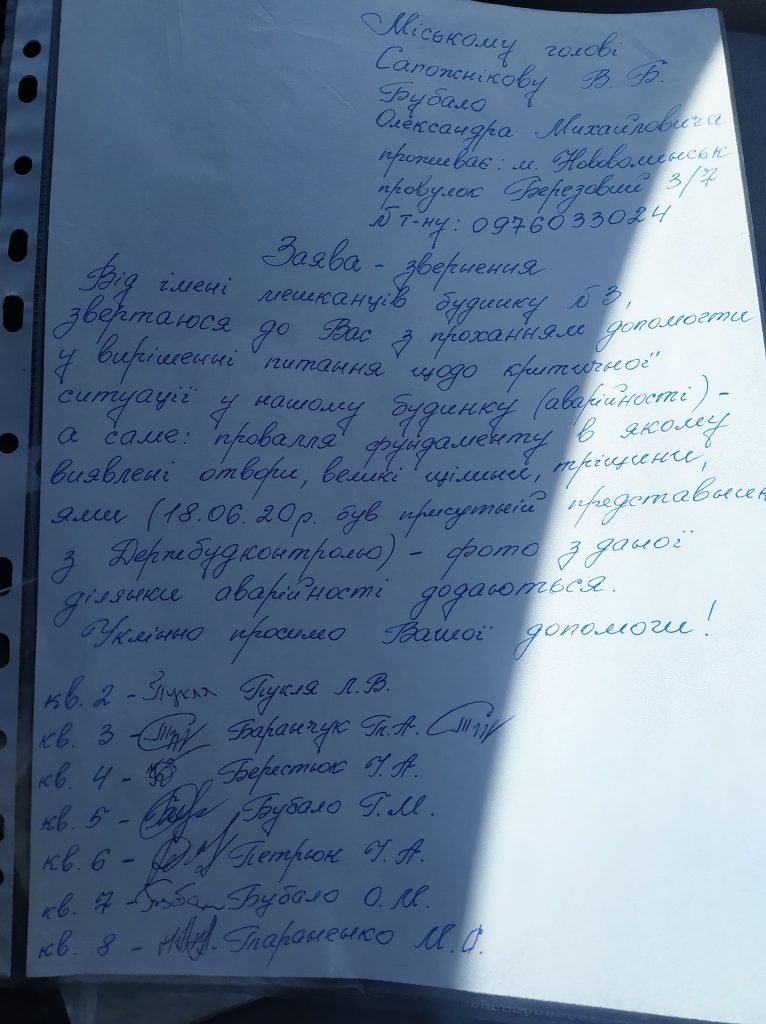 Міському голові
Сапожнікову В. Б.
Бубало
Олександра Михайловича
проживає: м. Нововолинськ
провулок Березовий 3/7
№ т-ну: 0976033024
Заява - звернення
Від імені мешканців будинку № 3,
звертаюся до Вас з проханням допомогти
у вирішенні питання щодо критичної
ситуації у нашому будинку (аварійності) -
а саме: провалля фундаменту в якому
виявлені отвори, великі щілини, тріщини,
ями (18.06.20р. був присутній представник
з Держбудконтролю) - фото з даної
ділянки аварійності додаються.
Уклінно просимо Вашої допомоги!
кв. 2 - Пукля Пукля Л.В.
кв. 3 - Баранчук Т.А.
кв. 4 - Берестюк І.А.
кв. 5 - Бубало Г.М.
кв. 6 - Петрюк І.А.
кв. 7 - Бубало О.М.
кв. 8 - Тараненко М.О.